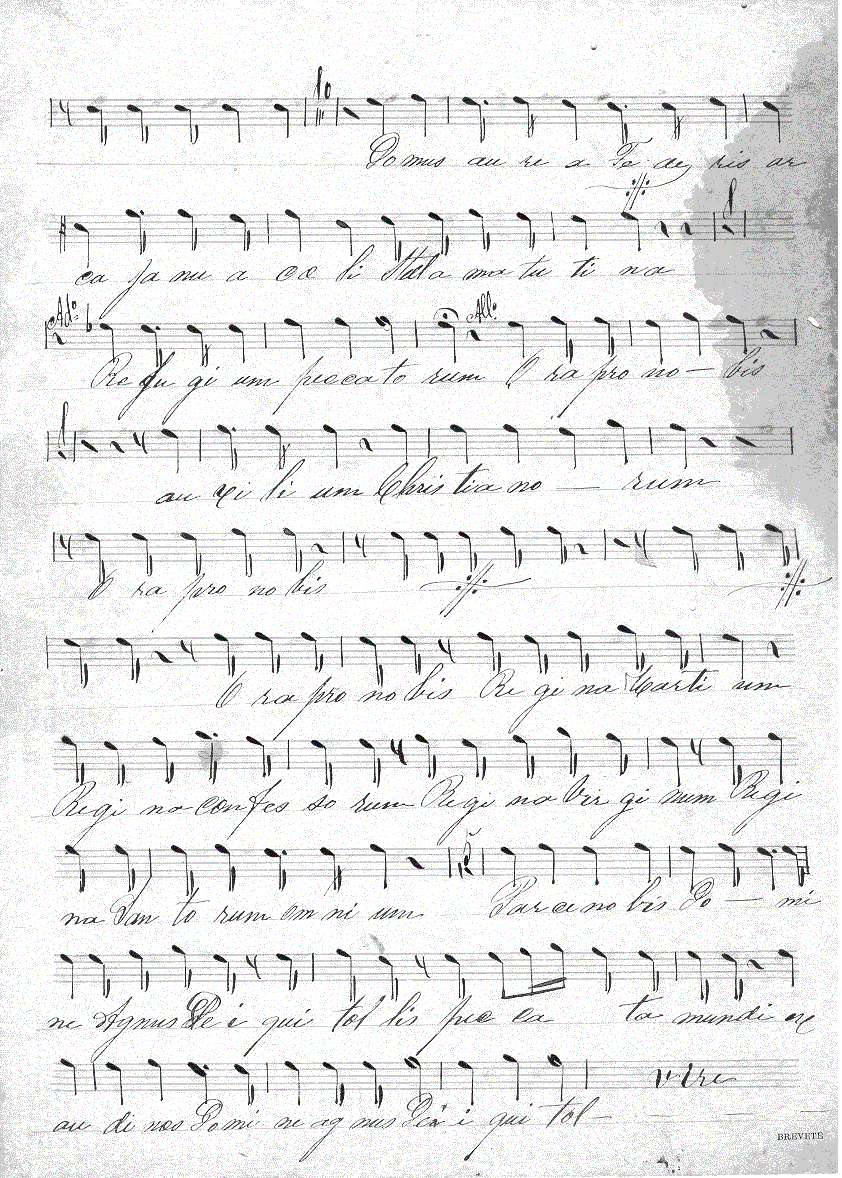 10
Domus au re a Fe de ris ar
8
ca Ja nu a coe li Stela ma tu ti na
Ado. Allo.
Re fu gi um pecca to rum O ra pro no — bis
au xi li um Chris tia no — rum
O ra pro no bis
O ra pro no bis Re gi na Marti um
Regi na confes so rum Regi na Vir gi num Regi
na San to rum om ni um Parce no bis Do — mi
ne Agnus De i qui tol lis pec ca ta mundi ex
au di nos Domi ne ag nus Dei i qui tol —
vire
BREVETE